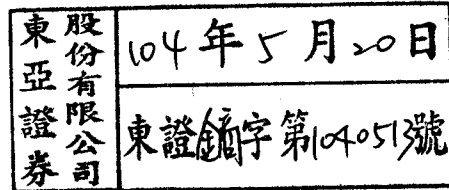 東亞證券
股份有限公司
104年5月20日
東證鏑字第1040513號